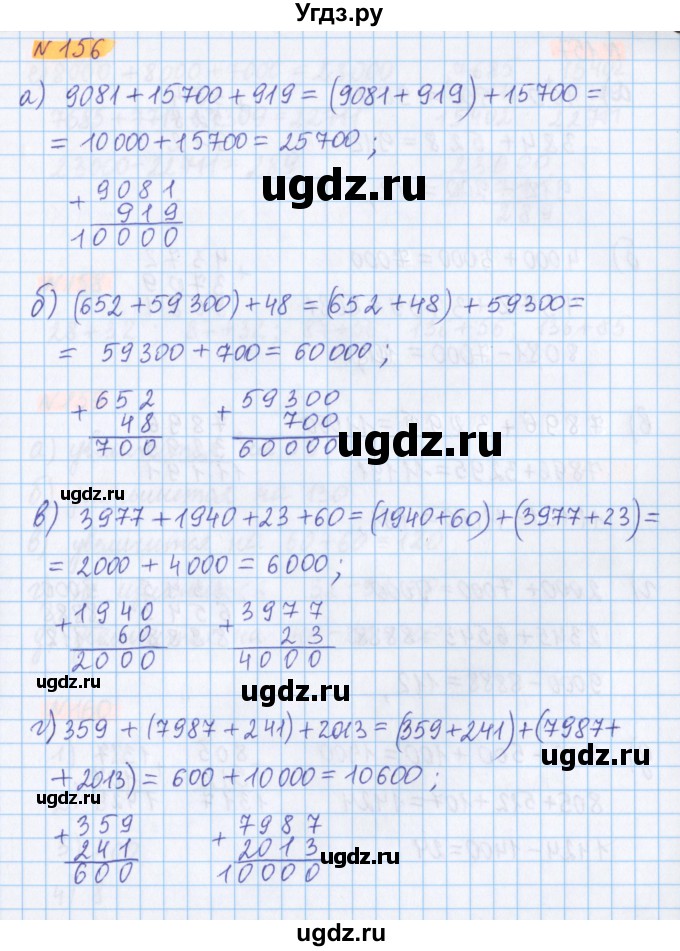 Угдз.ру
N 156
а) 9081 + 15700 + 919 = (9081 + 919) + 15700 =
= 10000 + 15700 = 25700 ;
ugdz.ru
+ 9081
919
10000
б) (652 + 59300) + 48 = (652 + 48) + 59300 =
= 59300 + 700 = 60000 ;
+ 652 + 59300
48 700
700 60000
ugdz.ru
ugdz.ru
в) 3977 + 1940 + 23 + 60 = (1940 + 60) + (3977 + 23) =
= 2000 + 4000 = 6000 ;
ugdz.ru
+ 1940 + 3977
60 23
2000 4000
ugdz.ru
ugdz.ru
г) 359 + (7987 + 241) + 2013 = (359 + 241) + (7987 +
+ 2013) = 600 + 10000 = 10600 ;
ugdz.ru
ugdz.ru
+ 359 + 7987
241 2013
600 10000
ugdz.ru
ugdz.ru